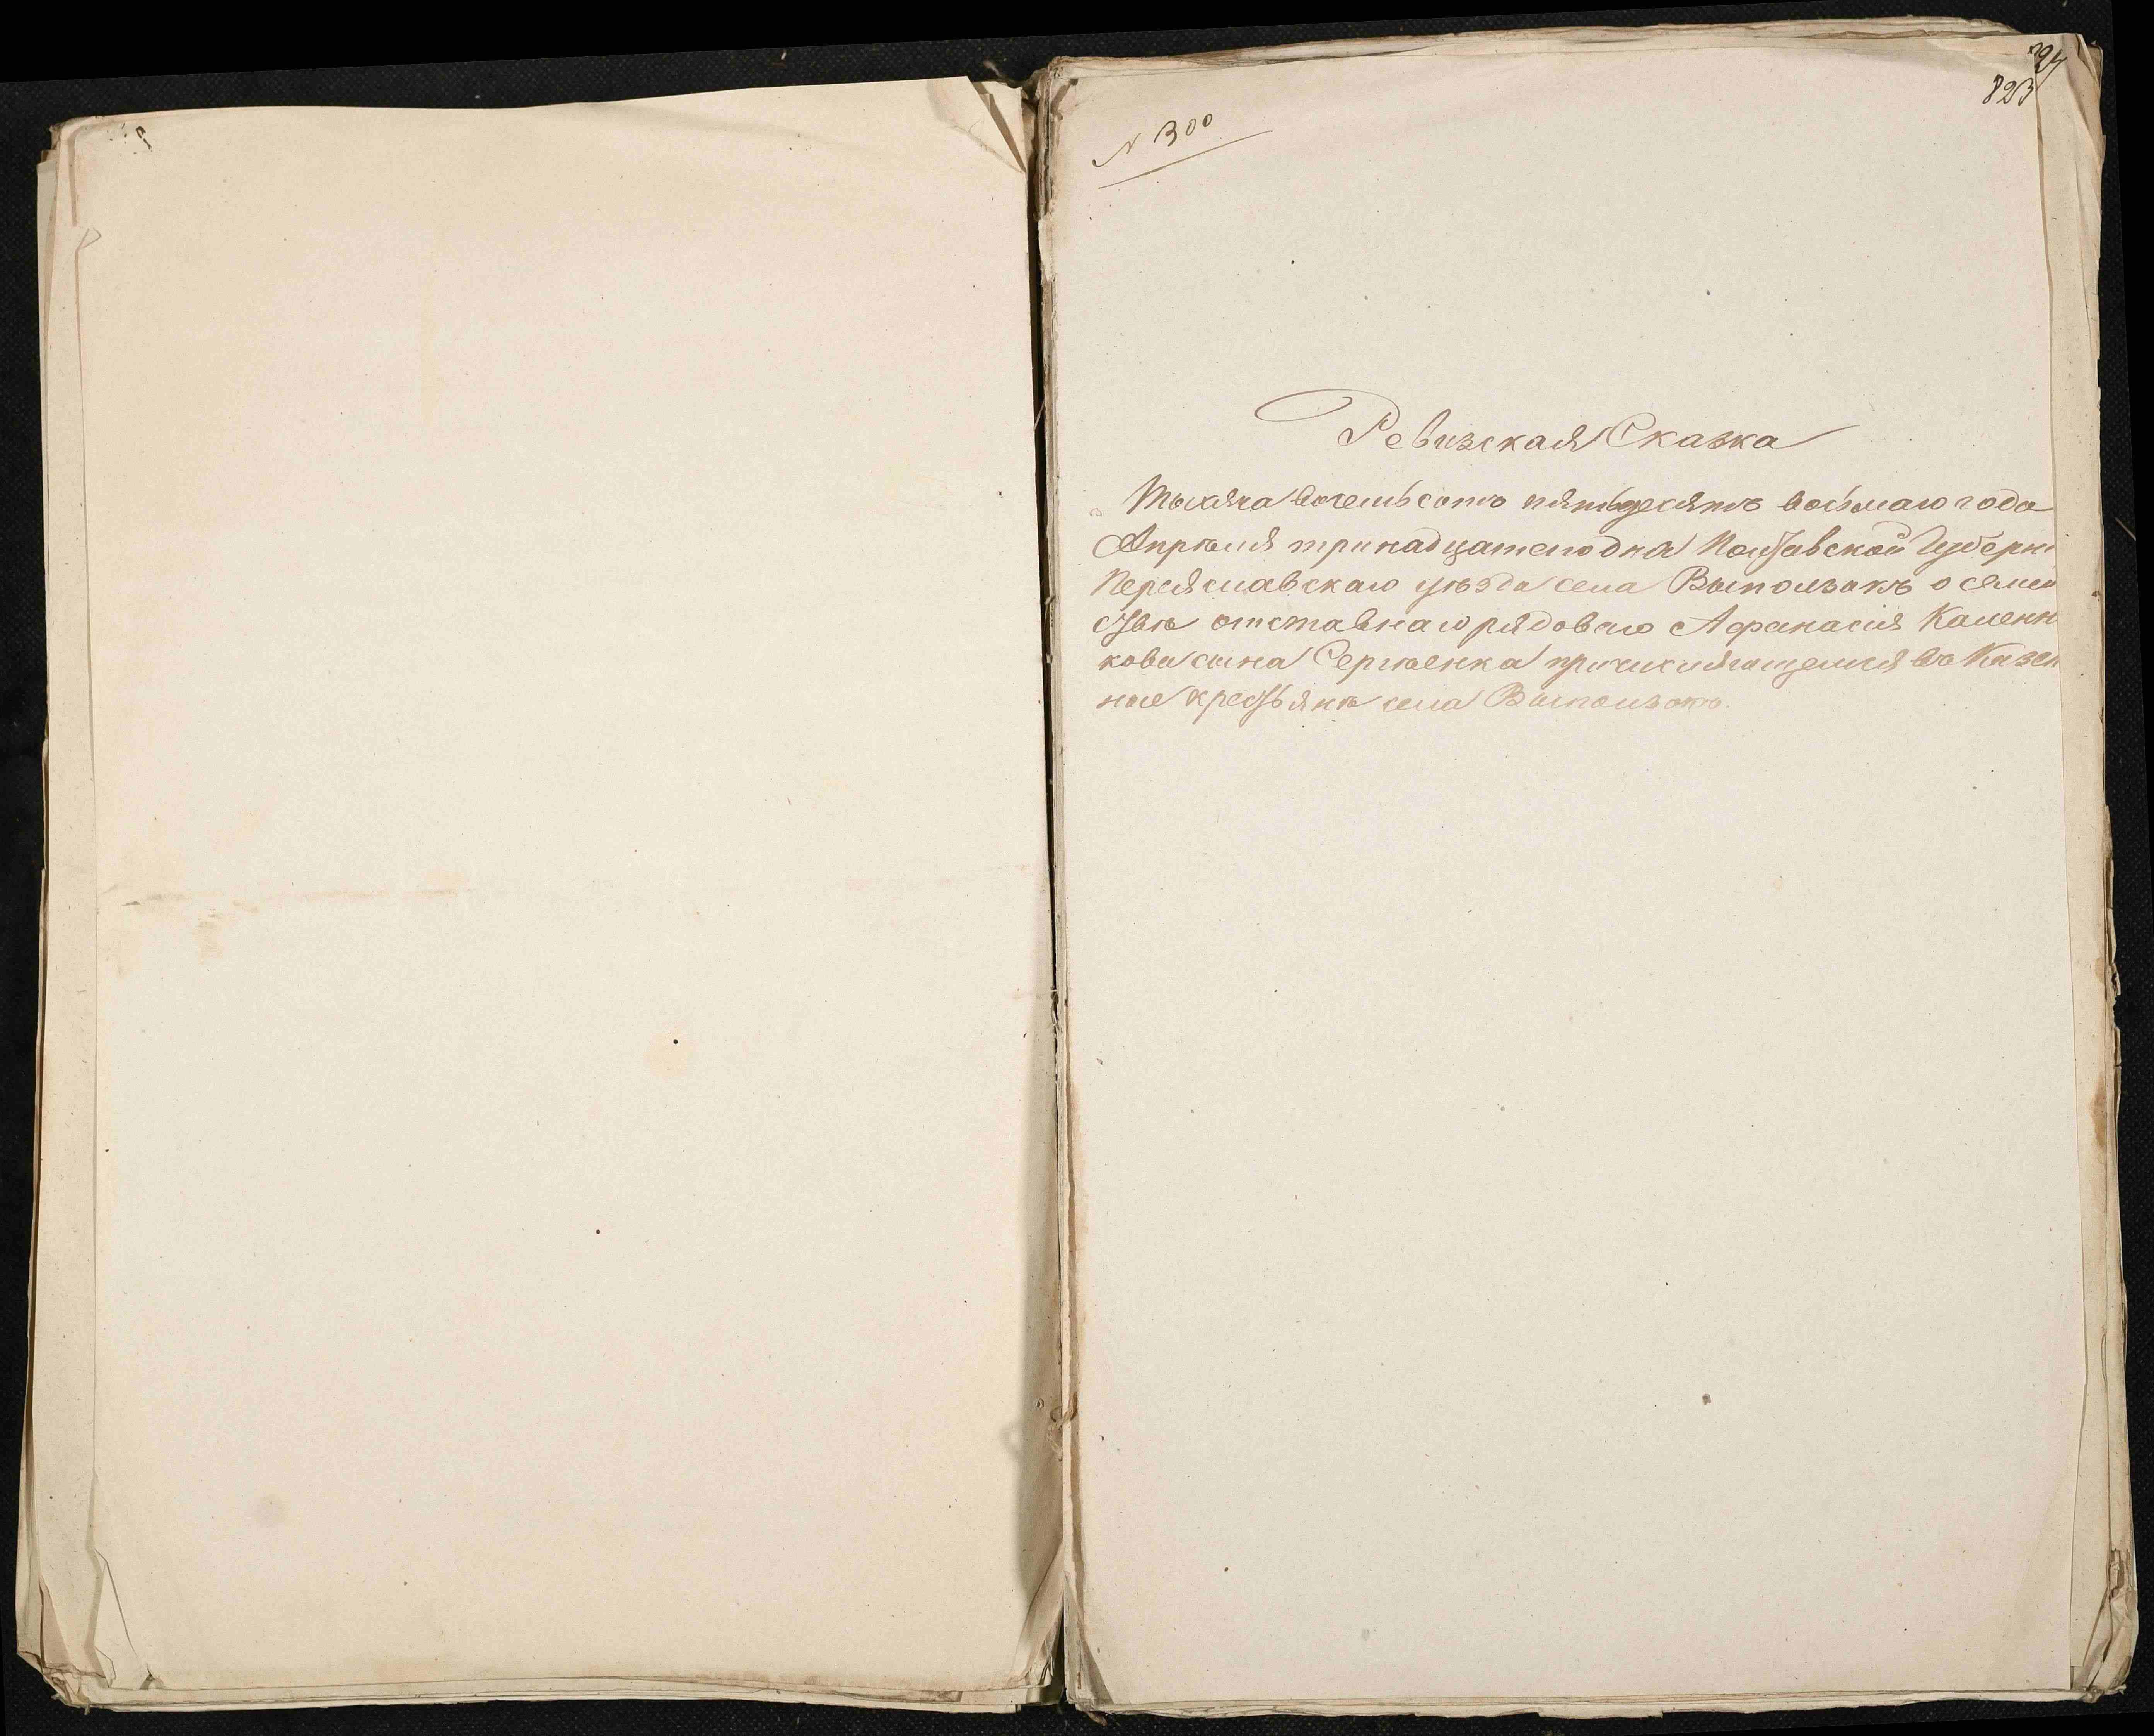 N 300
823
Ревизская Сказка
Тысяча восемьсотъ пятьдесятъ восьмаго года
Апрѣля тринадцатаго дня Полтавской Губерні
Переяславскаго уѣзда села Выползокъ о семей
ствѣ отставнаго рядоваго Афанасія Каленн
кова сына Сергѣенка причисляющемся въ Казен
ные крестьяне села Выползокъ.